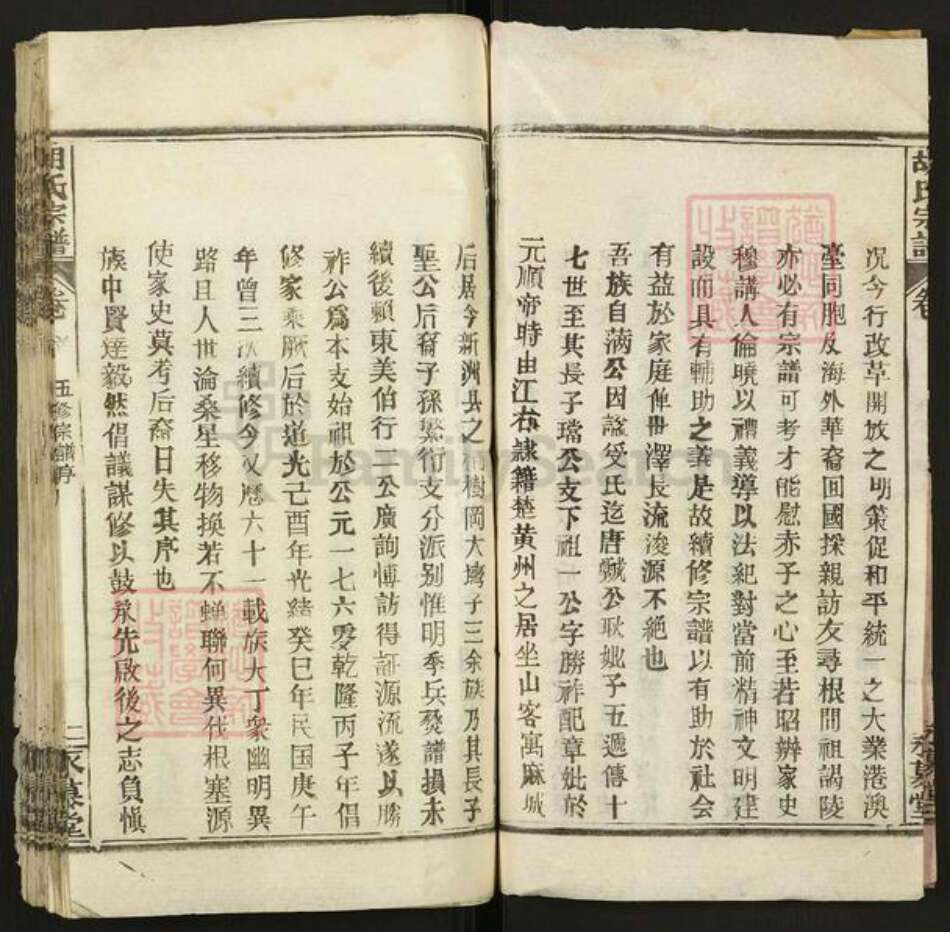 胡氏宗譜
卷
永慕堂
況今行改革開放之明策促和平統一之大業港澳
臺同胞及海外華裔回國探親訪友尋根問祖謁陵
亦必有宗譜可考才能慰赤子之心至若昭辦家史
穆講人倫曉以禮義導以法紀對當前精神文明建
設而具有輔助之義是故續修宗譜以有助於社会
有益於家庭俾世澤長流浚源不絶也
吾族自滿公因謚受氏迄唐虢公耿妣子五遞傳十
七世至其長子璫公支下祖一公字勝祚配章妣於
元順帝時由江右隸籍楚黄州之居坐山客寓麻城
后居今新洲县之柏樹岡大塆子三余族乃其長子
聖公后裔子孫繁衍支分派别惟明季兵燹譜損未
續後賴東美伯行二公廣詢博訪得証源流遂以勝
祚公爲本支始祖於公元一七六零乾隆丙子年倡
修家乘厥后於道光己酉年光緒癸巳年民国庚午
年曾三次續修今又歷六十一載族大丁衆幽明異
路且人世淪桑星移物換若不蝉聯何異伐根塞源
使家史莫考后裔日失其序也
族中賢達毅然倡議謀修以鼓承先啟後之志負慎
胡氏宗譜
卷
五修宗譜序
二
永慕堂
FamilySearch